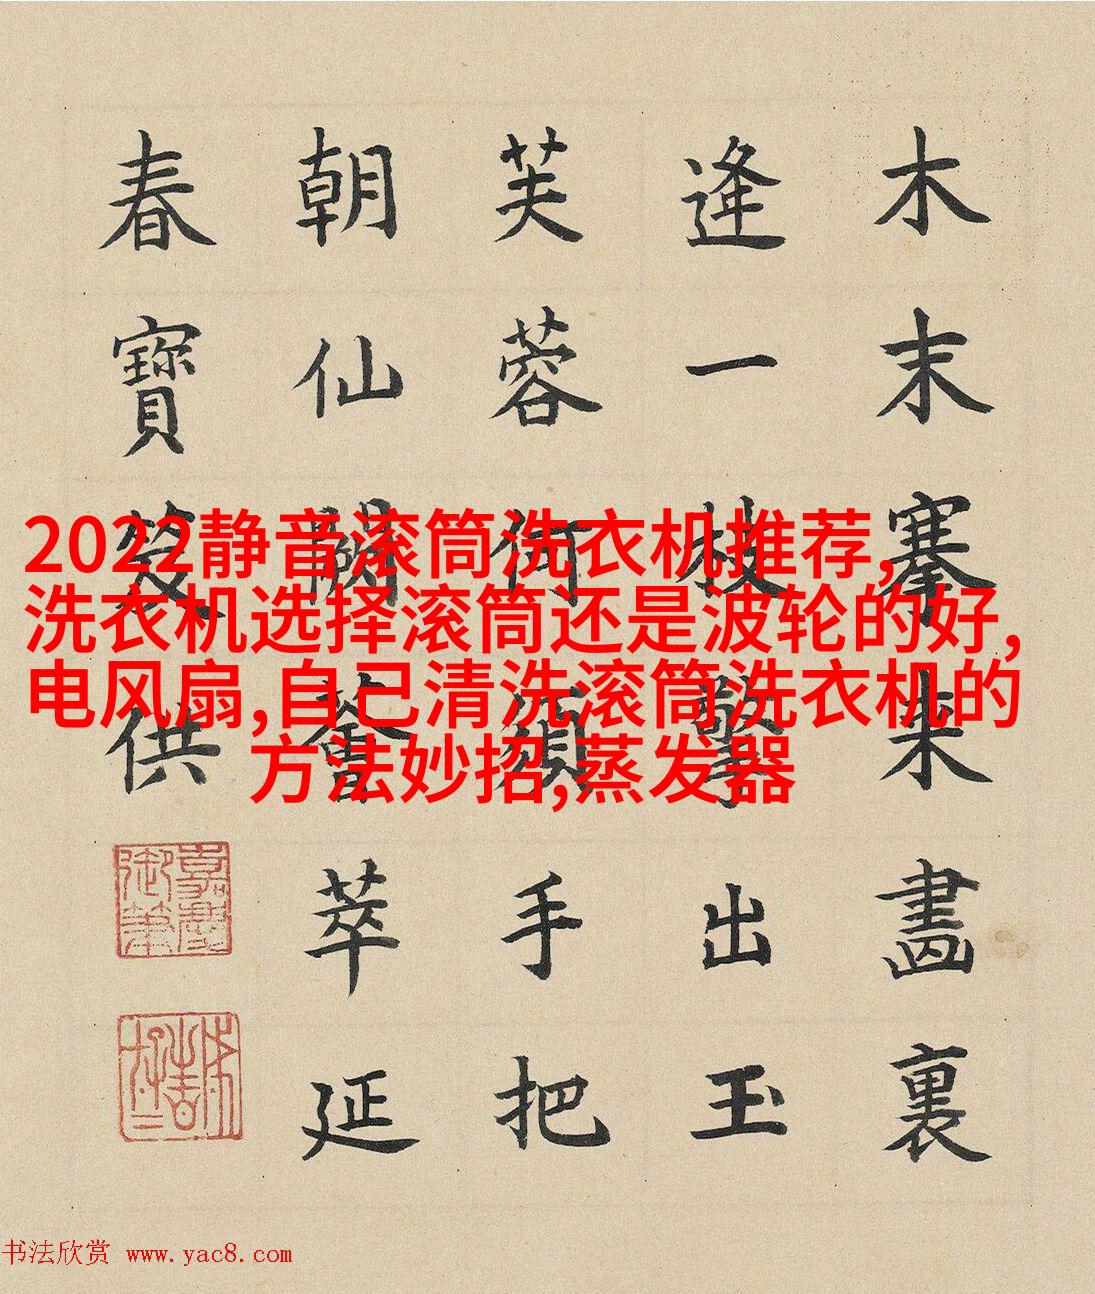 木末搴来畫裏
逢一枝擎出玉
芙蓉何須手把
朝仙闕薈萃延
春寶笈供
嘉慶御筆
2022静音滚筒洗衣机推荐,
洗衣机选择滚筒还是波轮的好,
电风扇,自己清洗滚筒洗衣机的
方法妙招,蒸发器
书法欣赏 www.yac8.com